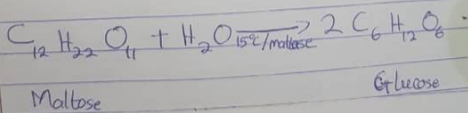 C₁₂H₂₂O₁₁ + H₂O 15°C/maltase → 2 C₆H₁₂O₆
Maltose Glucose